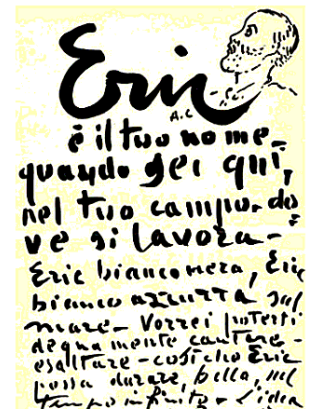 Eric
A.C
è il tuo nome
quando sei qui,
nel tuo campo. do
ve si lavora -
Eric bianconera, Eric
bianco azzurra sul
mare - Vorrei poterti
degnamente cantare -
esaltare - cosicchè Eric
possa durare, bella, nel
tempo infinito - L'idea